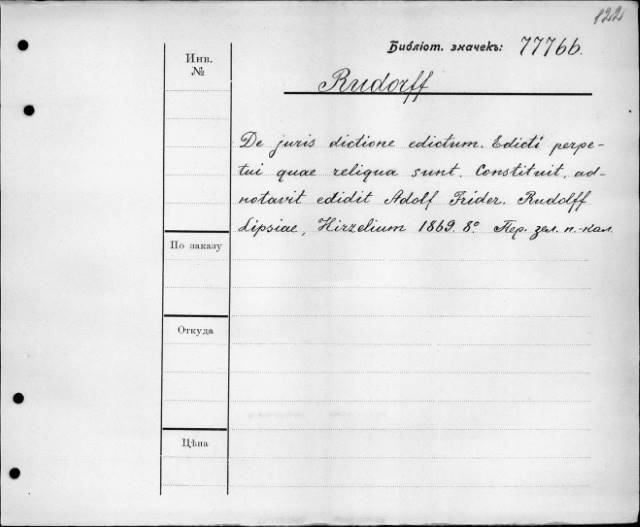 122
Библіот. значекъ: 77766.
Инв.
№
Rudorff
De juris dictione edictum. Edicti perpe-
tui quae reliqua sunt. Constituit, ad-
notavit edidit Adolf Frider. Rudolff
Lipsiae, Hirzelium 1869. 8° Пер. зел. п.-кал.
По заказу
Откуда
Цѣна